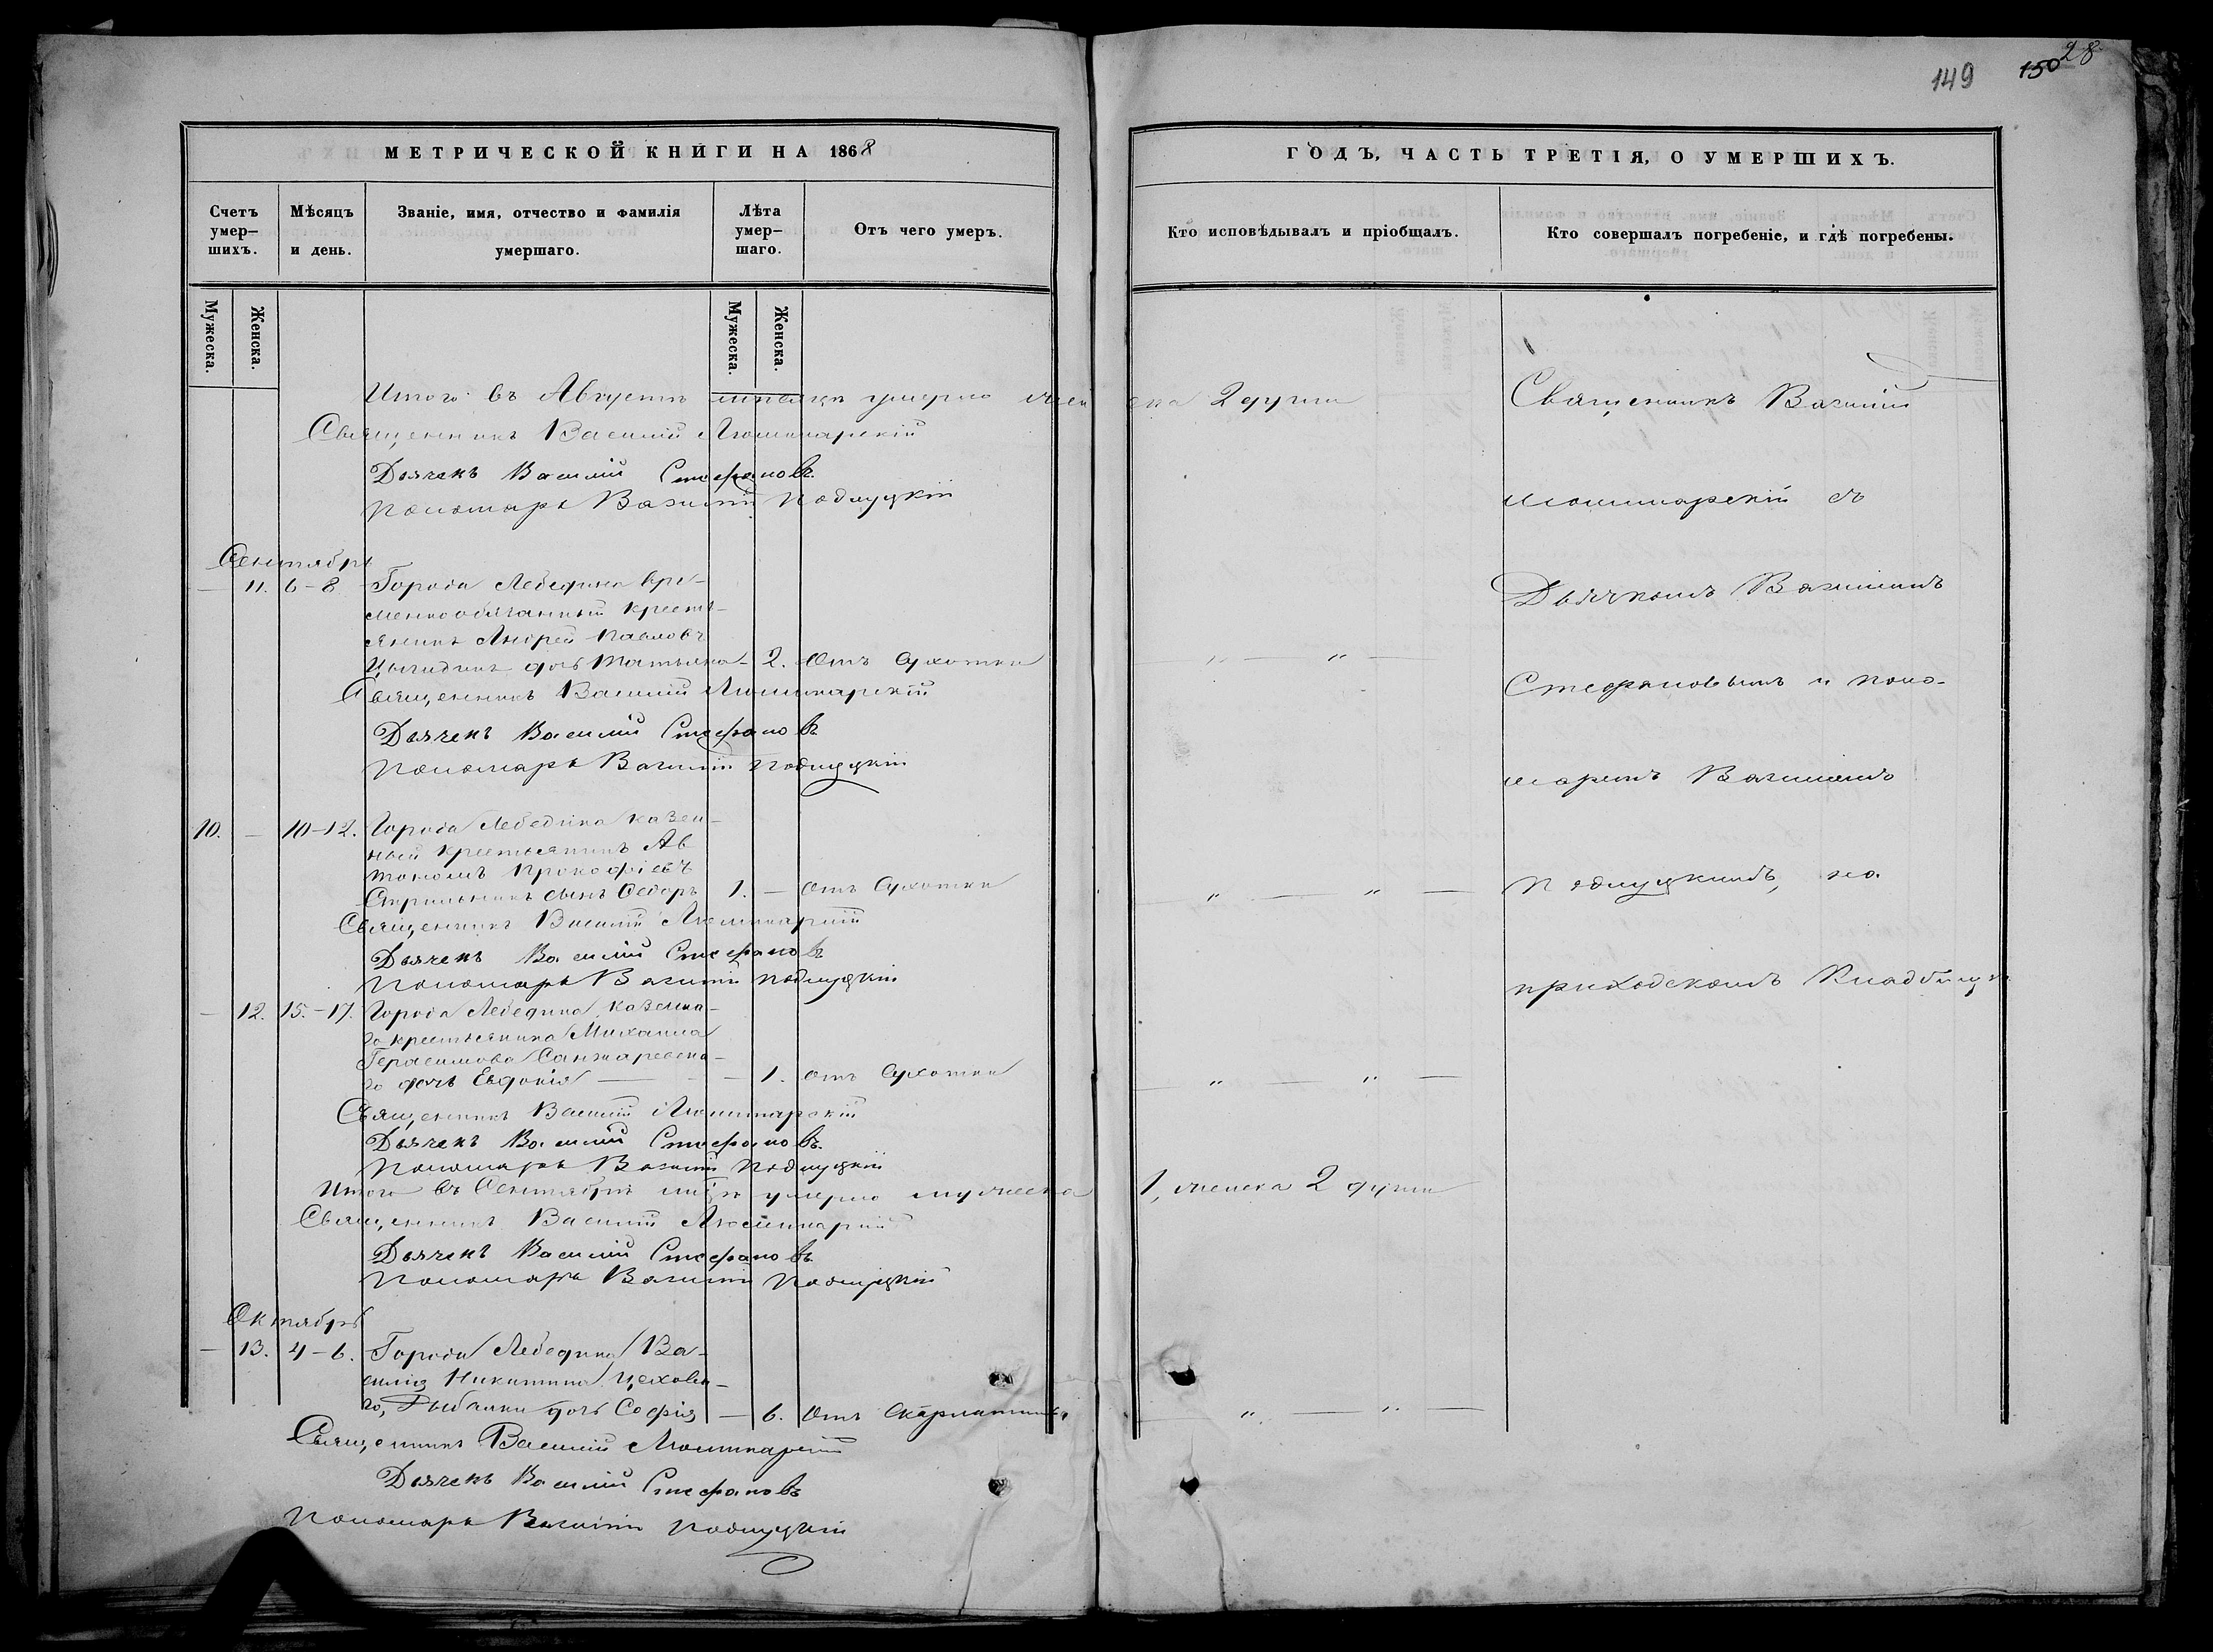 149 150 28
МЕТРИЧЕСКОЙ КНИГИ НА 1868
Счетъ умер-шихъ.
Мѣсяцъ и день.
Званіе, имя, отчество и фамилія умершаго.
Лѣта умер-шаго.
Отъ чего умеръ.
Мужеска. Женска. Мужеска. Женска.
Итого въ Августѣ месяцѣ умерло жен
Священникъ Василій
Дьячекъ Василій Стефановъ.
Пономарь Василій Подлуцкій
Сентябрь
— 11. 6-8 Города Лебедина вре-
меннообязанный кресть-
янинъ Андрей Павловъ
дочь Татьяна - 2. Отъ Сухотки
Священникъ Василій
Дьячекъ Василій Стефановъ
Пономарь Василій Подлуцкій
10. — 10-12. Города Лебедина казен-
ный крестьянинъ Ав
тономъ Прокофіевъ
сынъ Ѳедоръ 1. — Отъ Сухотки
Священникъ Василій
Дьячекъ Василій Стефановъ
Пономарь Василій Подлуцкій
— 12. 15.-17. Города Лебедина, казенна-
го крестьянина Михаила
Герасимова Санжаревска-
го дочь Евдокія — — 1. Отъ Сухотки
Священникъ Василій
Дьячекъ Василій Стефановъ.
Пономарь Василій Подлуцкій
Итого въ Сентябрѣ умерло мужеска
Священникъ Василій
Дьячекъ Василій Стефановъ
Пономарь Василій Подлуцкій
Октябрь
— 13. 4-6. Города Лебедина Ва-
силія Никитина цехова-
го, Рыбалки дочь Софія — 6. Отъ Скарлатины
Священникъ Василій
Дьячекъ Василій Стефановъ
Пономарь Василій Подлуцкій
ГОДЪ, ЧАСТЬ ТРЕТІЯ, О УМЕРШИХЪ.
Кто исповѣдывалъ и пріобщалъ.
Кто совершалъ погребеніе, и гдѣ погребены.
ска 2 души
Священникъ Василій
съ
Дьячкомъ Василіемъ
„ — „ —
Стефановымъ и поно-
маремъ Василіемъ
„ — „ —
Подлуцкимъ, на
приходскомъ Кладбищѣ
„ — „ —
1, женска 2 души
„ — „ —